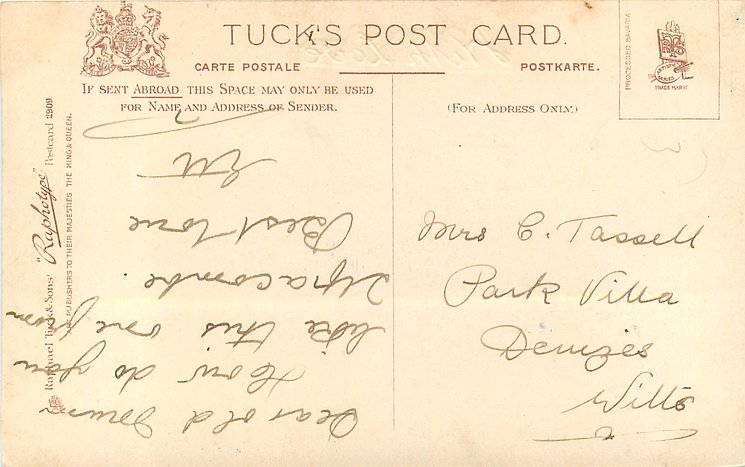 TUCK'S POST CARD.
CARTE POSTALE
POSTKARTE.
IF SENT ABROAD THIS SPACE MAY ONLY BE USED
FOR NAME AND ADDRESS OF SENDER.
(FOR ADDRESS ONLY.)
PROCESSED BAVARIA
ARTISTIC SERIES
TRADE MARK
Raphael Tuck & Sons' "Raphotype" Postcard 2909
ART PUBLISHERS TO THEIR MAJESTIES THE KING & QUEEN.
Dear old
How do you
like this one from
Ilfracombe.
Best love
Mrs C. Tassell
Park Villa
Devizes
Wilts